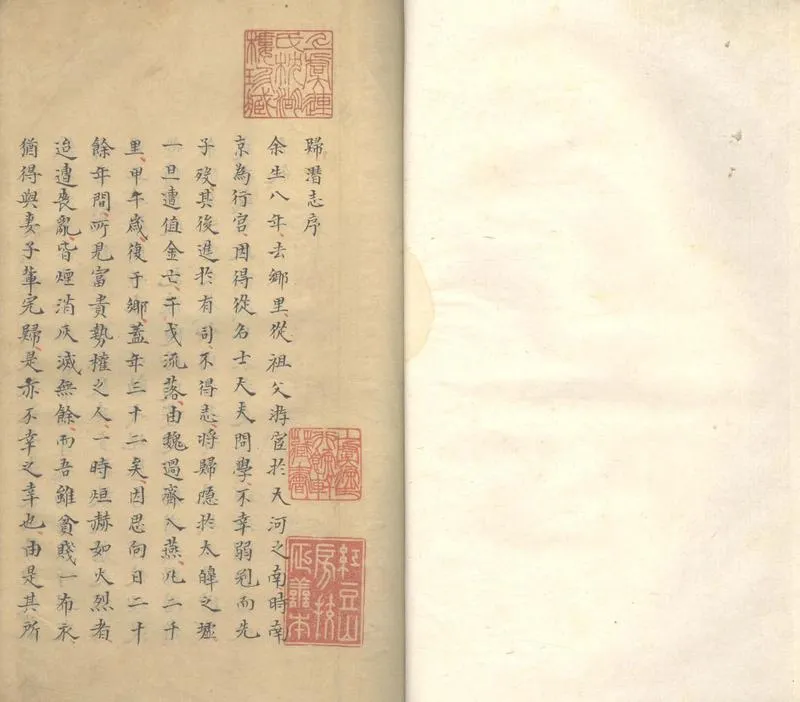 上虞連
氏枕湖
樓珍藏
歸潛志序
余生八年去鄉里從祖父游宦於大河之南時南
京為行宮因得從名士大夫問學不幸弱冠而先
子歿其後進於有司不得志將歸隱於太皞之墟
一旦遭值金亡干戈流落由魏過齊入燕凡二千
里甲午歲復于鄉蓋年三十二矣因思向日二十
餘年間所見富貴勢權之人一時烜赫如火烈者
迨遭喪亂皆煙消灰滅無餘而吾雖貧賤一布衣
猶得與妻子輩完歸是亦不幸之幸也由是其所
藏書
紅豆山
房校
正善本